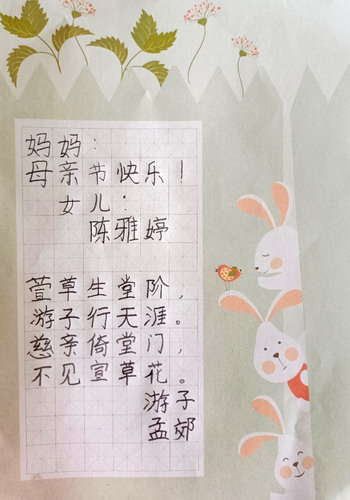 妈妈：
母亲节快乐！
女儿：
陈雅婷
萱草生堂阶，
游子行天涯。
慈亲倚堂门，
不见宣草花。
游子
孟郊